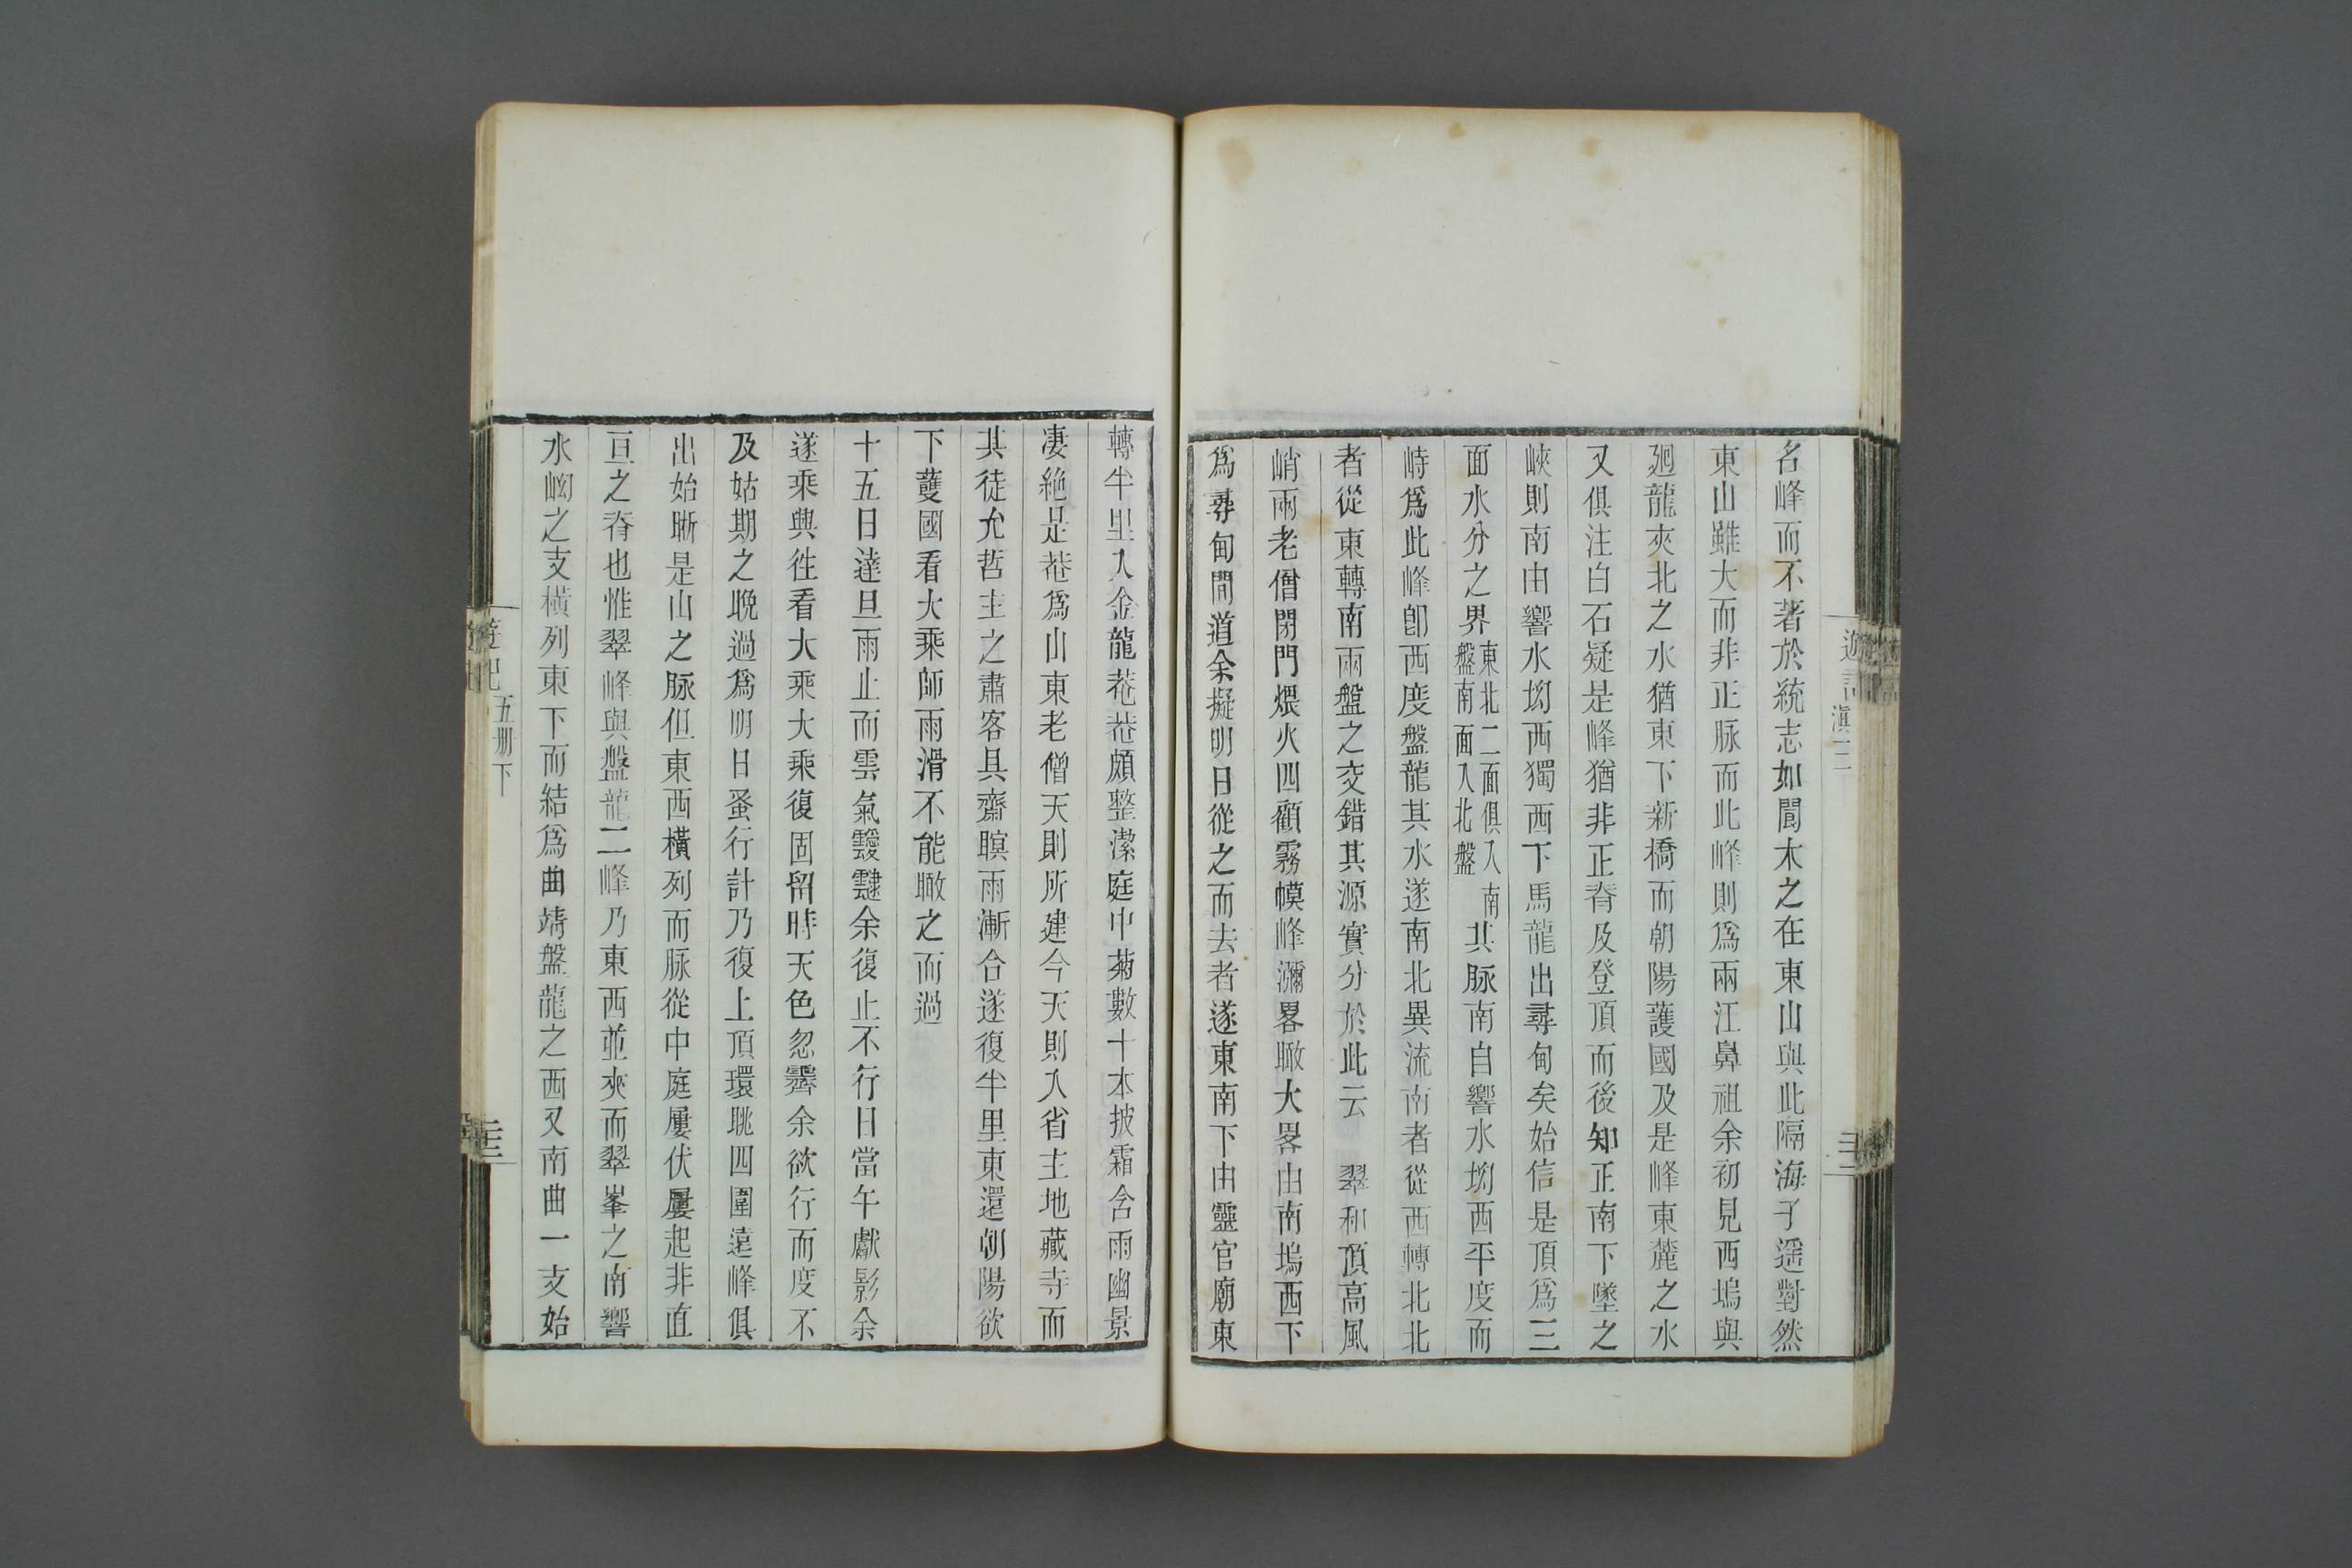 名峰而不著於統志如閭木之在東山與此隔海子遥對然
東山雖大而非正脉而此峰則爲兩江鼻祖余初見西塢與
廻龍夾北之水猶東下新橋而朝陽護國及是峰東麓之水
又俱注白石疑是峰猶非正脊及登頂而後知正南下墜之
峽則南由響水坳西獨西下馬龍出尋甸矣始信是頂爲三
面水分之界東北二面俱入南盤南面入北盤其脉南自響水坳西平度而
峙爲此峰卽西度盤龍其水遂南北異流南者從西轉北北
者從東轉南兩盤之交錯其源實分於此云　翠和頂高風
峭兩老僧閉門煨火四顧霧幙峰瀰畧瞰大畧由南塢西下
爲尋甸間道余擬明日從之而去者遂東南下由靈官廟東
轉半里入金龍菴菴頗整潔庭中菊數十本披霜含雨幽景
凄絶是菴爲山東老僧天則所建今天則入省主地藏寺而
其徒允哲主之肅客具齋暝雨漸合遂復半里東還朝陽欲
下䕶國看大乘師雨滑不能瞰之而過
十五日達旦雨止而雲氣靉靆余復止不行日當午獻影余
遂乘興徃看大乘大乘復固留時天色忽霽余欲行而度不
及姑期之晚過爲明日蚤行計乃復上頂環眺四圍遠峰俱
出始晰是山之脉但東西橫列而脉從中庭屢伏屢起非直
亘之脊也惟翠峰與盤龍二峰乃東西並夾而翠峯之南響
水坳之支橫列東下而結爲曲靖盤龍之西又南曲一支始
遊記
滇三
三十二
遊記
五册下
三十三